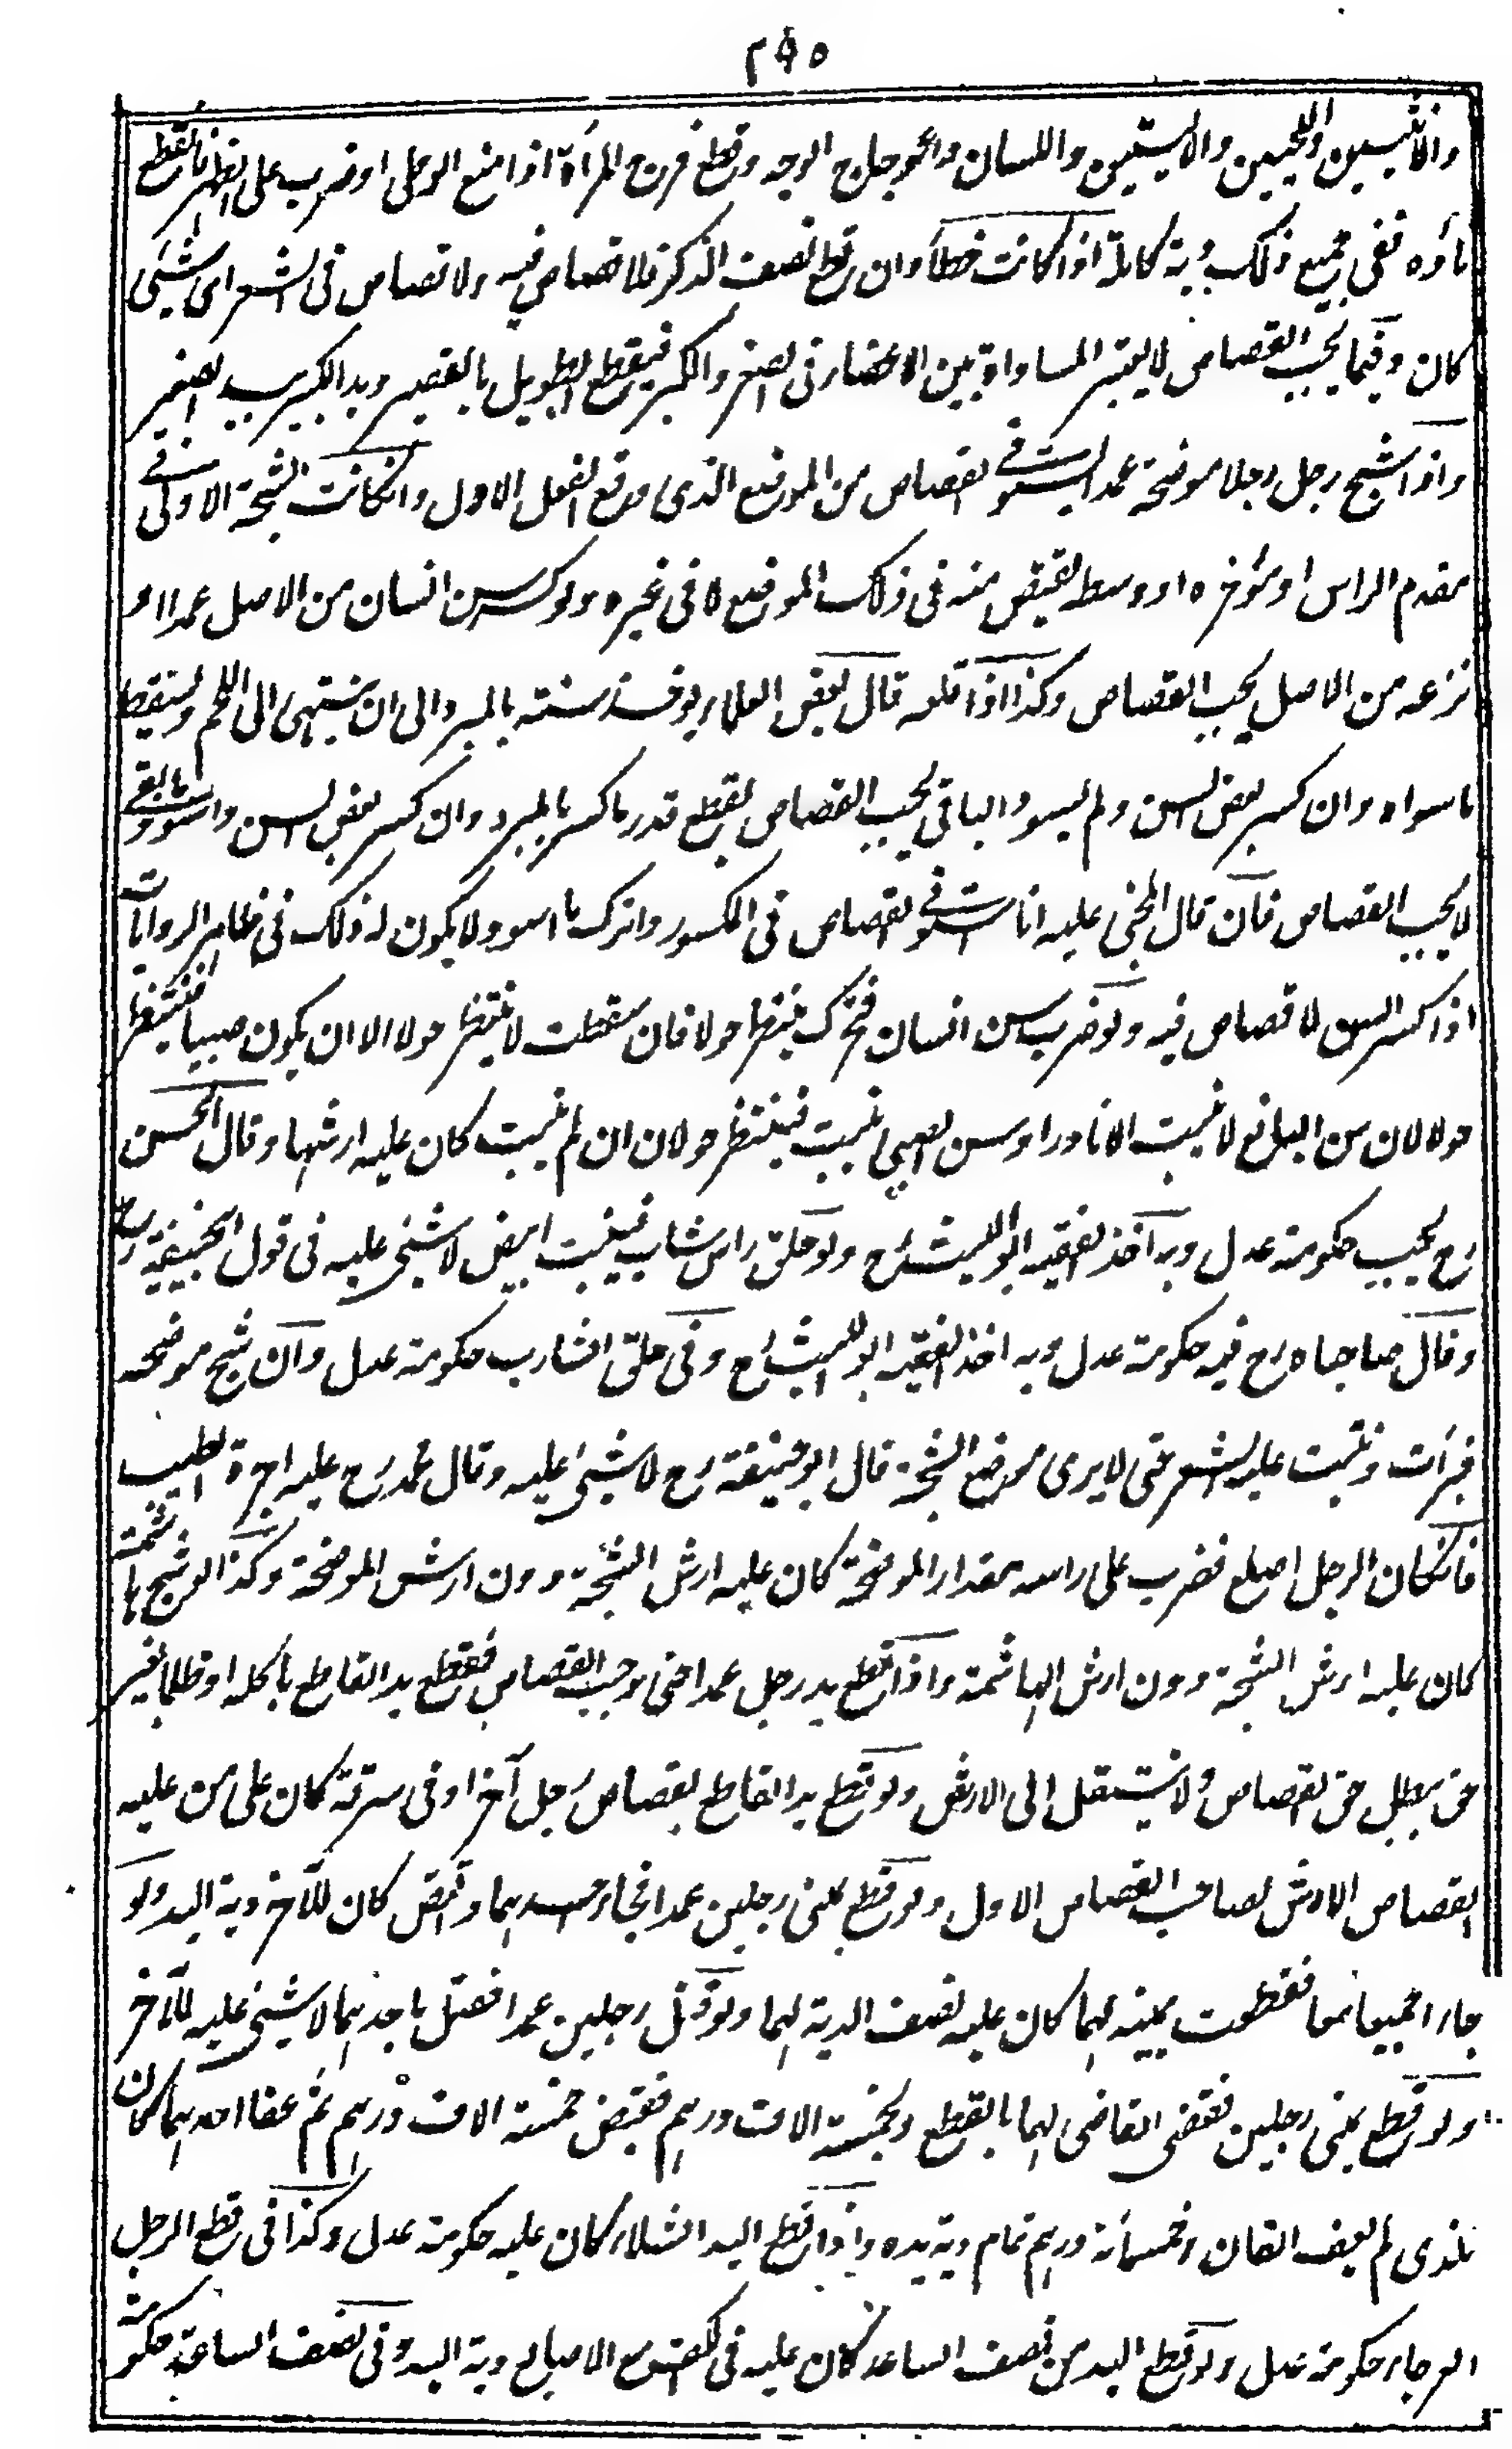 ٢٩٥
والانثيين واللحيين والاليتين واللسان واعوجاج الوجه وقطع فرج المرأة اذا منع الوطى او ضرب على الظهر فانقطع
ماؤه ففى جميع ذلك دية كاملة اذا كانت خطأ وان قطع نصف الذكر فلا قصاص فيه ولا قصاص فى الشعر اى شئى
كان وفيما يجب القصاص لا يعتبر المساواة بين الاعضاء فى الصغر والكبر فيقطع الطويل بالقصير ويد الكبير بيد الصغير
واذا شج رجل رجلا موضحة عمدا يستوفى القصاص من الموضع الذى وقع الفعل الاول وانكانت الشجة الاولى فى
مقدم الراس او مؤخره او وسطه يقتص منه فى ذلك الموضع لا فى غيره ولو كسر سن انسان من الاصل عمدا او
نزعه من الاصل يجب القصاص وكذا اذا قلعه قال بعض العلماء يوخذ سنه بالمبرد الى ان ينتهى الى اللحم ويسقط
ما سواه وان كسر بعض السن ولم يسود الباقى يجب القصاص يقطع قدر ما كسر بالمبرد وان كسر بعض السن واسود ما بقى
لا يجب القصاص فان قال المجنى عليه انا استوفى القصاص فى المكسور واترك ما اسود لا يكون له ذلك فى ظاهر الروايات
اذا كسر السن لا قصاص فيه ولو ضرب سن انسان فتحرك ينتظر حولا فان سقطت لا ينتظر حولا الا ان يكون صبيا فينتظر
حولا لان سن البالغ لا ينبت الا نادرا وسن الصبى ينبت فينتظر حولا فان لم ينبت كان عليه ارشها وقال الحسن
رح يجب حكومة عدل وبه اخذ الفقيه ابو الليث رح ولو حلق راس شاب فينبت ابيض لا شئى عليه فى قول ابيحنيفة رح
وقال صاحباه رح فيه حكومة عدل وبه اخذ الفقيه ابو الليث رح وفى حلق الشارب حكومة عدل وان شج موضحه
فبرأت ونبت عليه الشعر حتى لا يرى موضع الشجة قال ابو حنيفة رح لا شئى عليه وقال محمد رح عليه اجرة الطبيب
فانكان الرجل اصلع فضرب على راسه مقدار الموضحة كان عليه ارش الشجة دون ارش الموضحة وكذا لو شج هاشمة
كان عليه ارش الشجة دون ارش الهاشمة واذا قطع يد رجل عمدا حتى وجب القصاص فقطع يد القاطع بأكلة او ظلما بغير
حق يبطل حق القصاص ولا ينتقل الى الارش ولو قطع يد القاطع بقصاص رجل آخر او فى سرقة كان على من عليه
القصاص الارش لصاحب القصاص الاول ولو قطع يمنى رجلين عمدا فجاء احدهما واقتص كان للآخر دية اليد ولو
جاءا جميعا معا فقطعت يمينه لهما كان عليه نصف الدية لهما ولو قتل رجلين عمدا فقتل باحدهما لا شئى عليه للآخر
ولو قطع يمنى رجلين فقضى القاضى لهما بالقطع وبخمسة الاف درهم فقبض خمسة الاف درهم ثم عفا احدهما كان
للذى لم يعف الفان وخمسمائة درهم تمام دية يده واذا قطع اليد الشلاء كان عليه حكومة عدل وكذا فى قطع الرجل
العرجاء حكومة عدل ولو قطع اليد من نصف الساعد كان عليه فى الكف مع الاصابع دية اليد وفى نصف الساعد حكومة